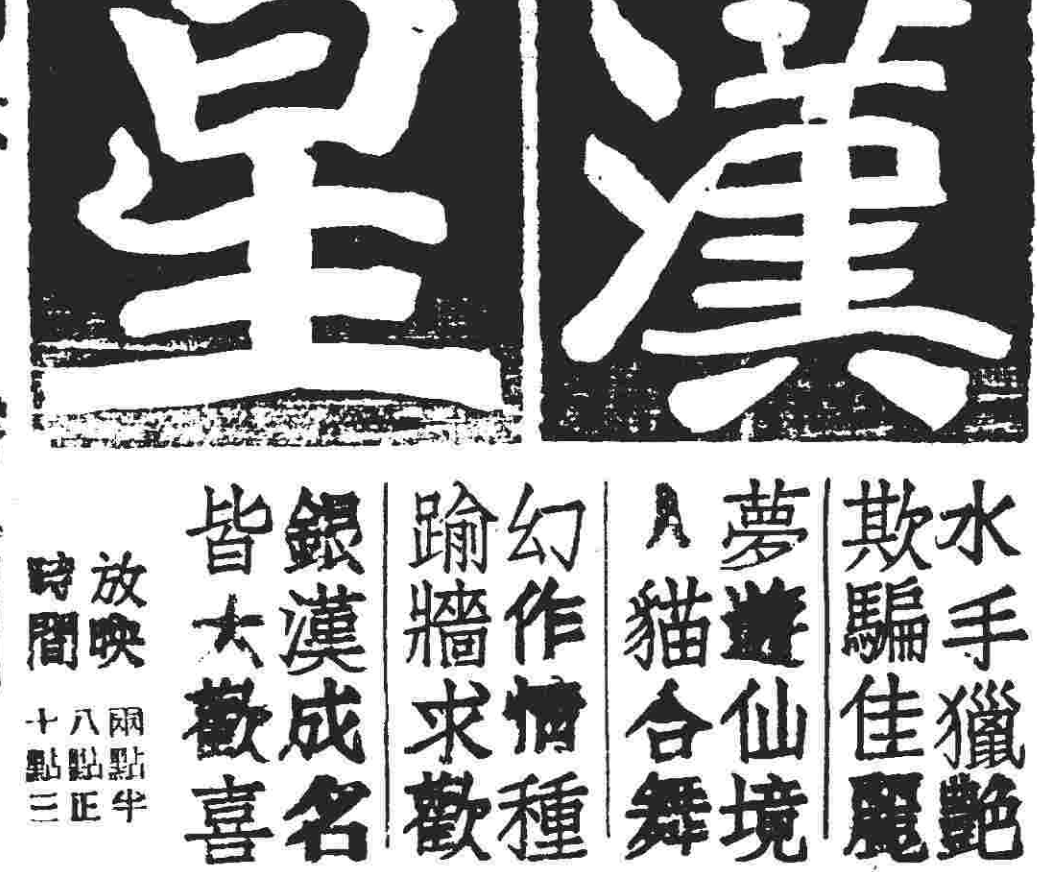 漢
星
水手獵艷
欺騙佳麗
夢遊仙境
人貓合舞
幻作情種
踰牆求歡
銀漢成名
皆大歡喜
放映
時間
兩點半
八點正
十點三